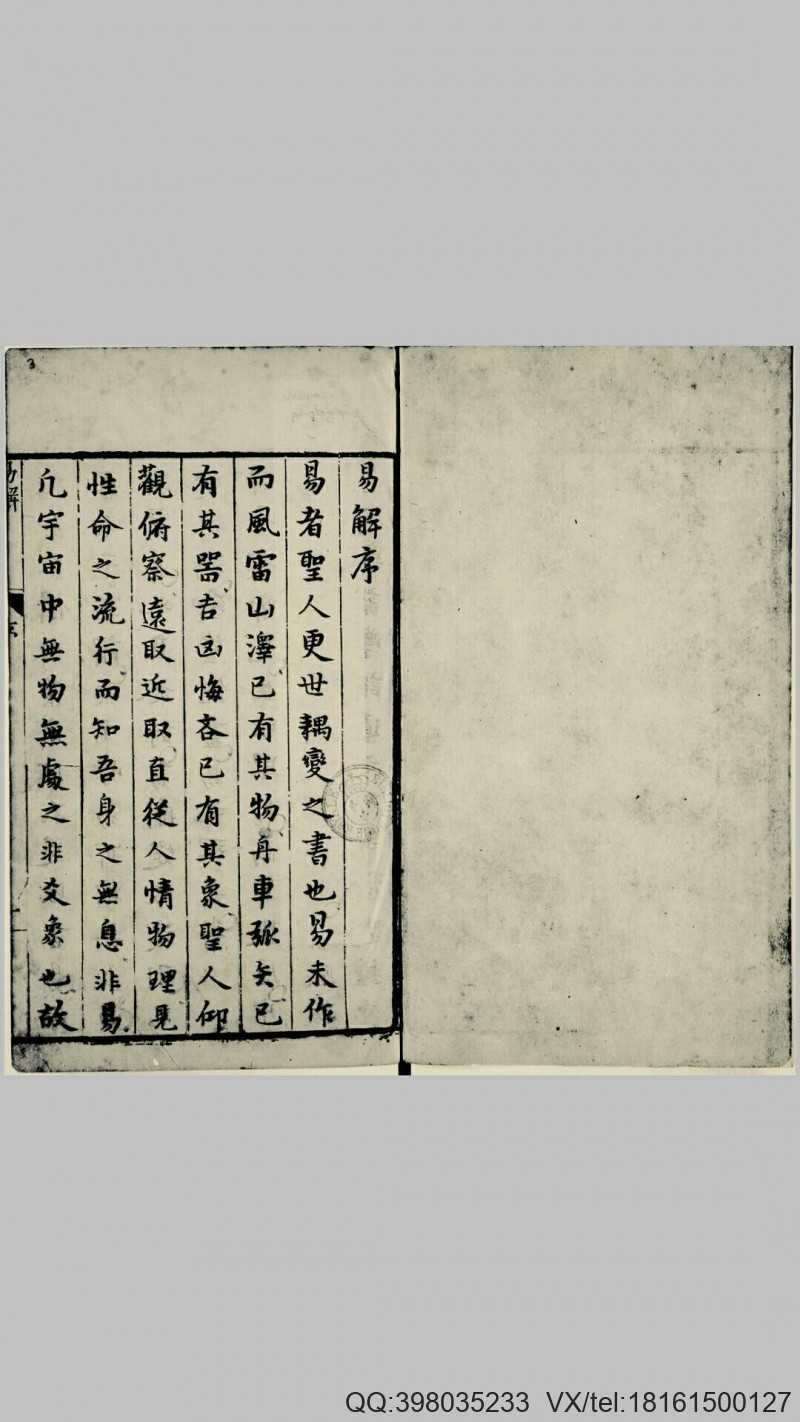 易解序
易者聖人更世耦變之書也易未作
而風雷山澤已有其物舟車弧矢已
有其器吉凶悔吝已有其象聖人仰
觀俯察遠取近取直從人情物理見
性命之流行而知吾身之無息非易
凢宇宙中無物無處之非爻象也故
易解
序
3
QQ:398035233 VX/tel:18161500127